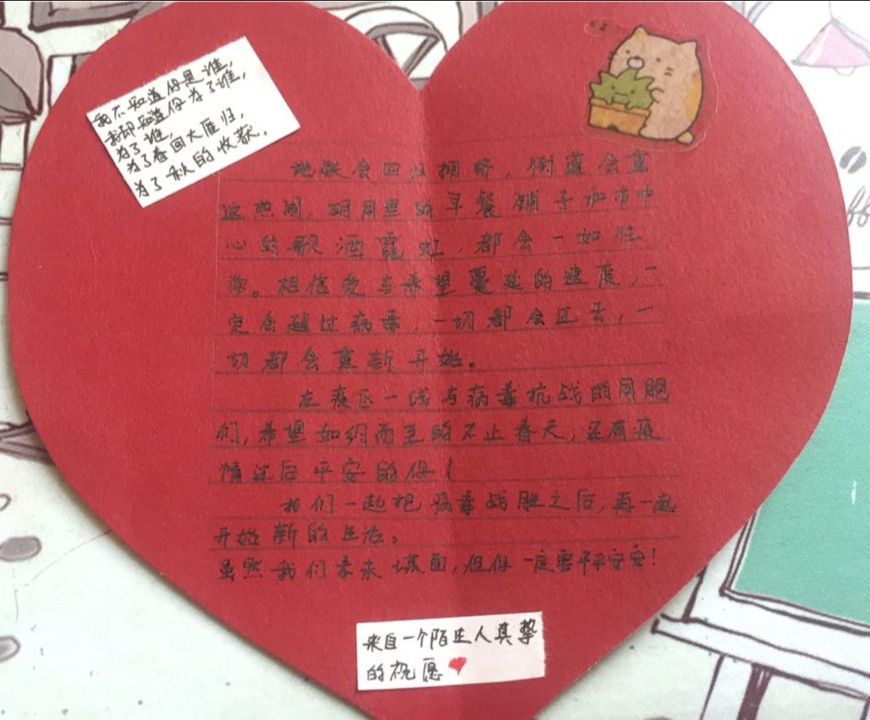 我不知道你是谁，
我却知道你为了谁，
为了谁，
为了春回大雁归，
为了秋的收获．
地铁会回归拥挤，街道会重
返热闹，胡同里的早餐铺子和市中
心的歌酒霓虹，都会一如往
常。相信爱与希望蔓延的速度，一
定会超过病毒，一切都会过去，一
切都会重新开始。
在疫区一线与病毒抗战的同胞
们，希望如约而至的不止春天，还有疫
情过后平安的你！
我们一起把病毒战胜之后，再一起
开始新的生活。
虽然我们素未谋面，但你一定要平平安安！
来自一个陌生人真挚
的祝愿